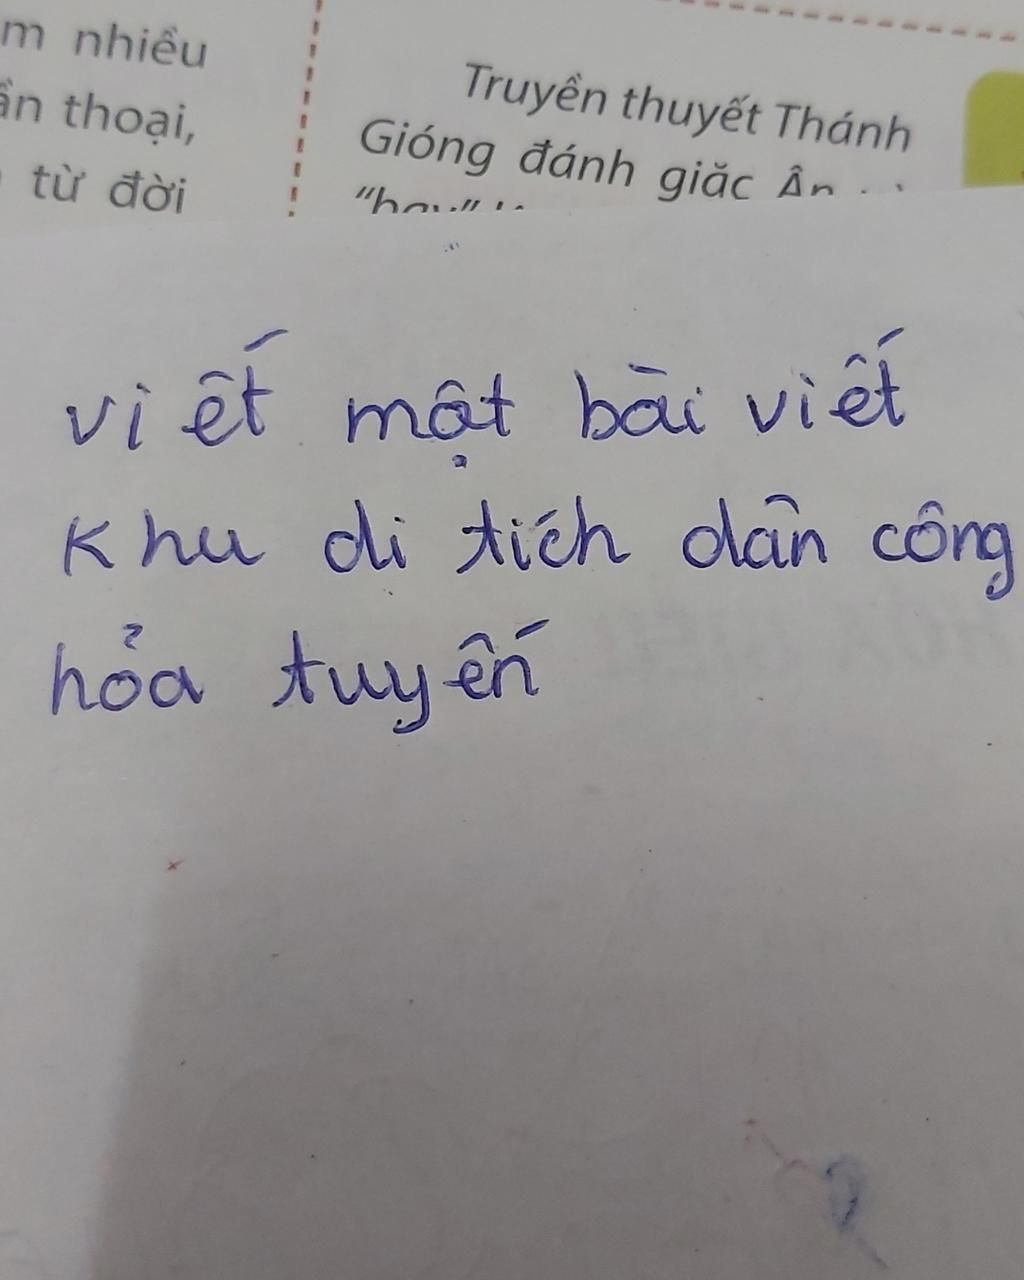 m nhiều
ần thoại,
từ đời
Truyền thuyết Thánh
Gióng đánh giặc Ân
"hay"
viết một bài viết
Khu di tích dân công
hỏa tuyến